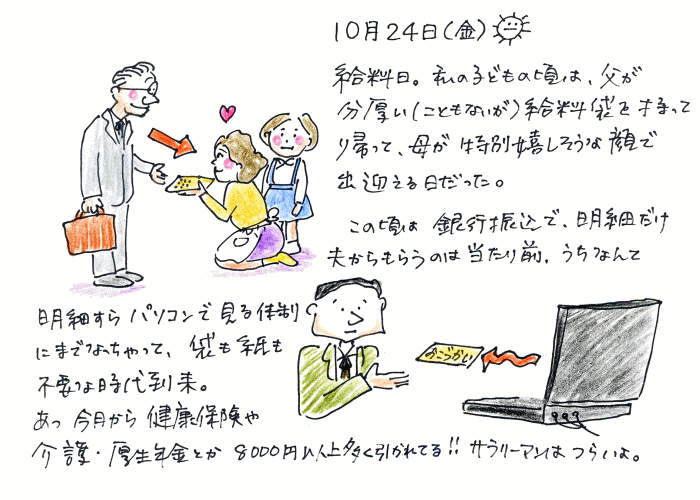 10月24日(金)
給料日。私の子どもの頃は、父が
分厚い(こともないが)給料袋を持って
帰って、母が特別嬉しそうな顔で
出迎える日だった。
この頃は銀行振込で、明細だけ
夫からもらうのは当たり前。うちなんて
明細すらパソコンで見る体制
にまでなっちゃって、袋も紙も
不要な時代到来。
おこづかい
あっ今月から健康保険や
介護・厚生年金とか8000円以上多く引かれてる!!サラリーマンはつらいよ。